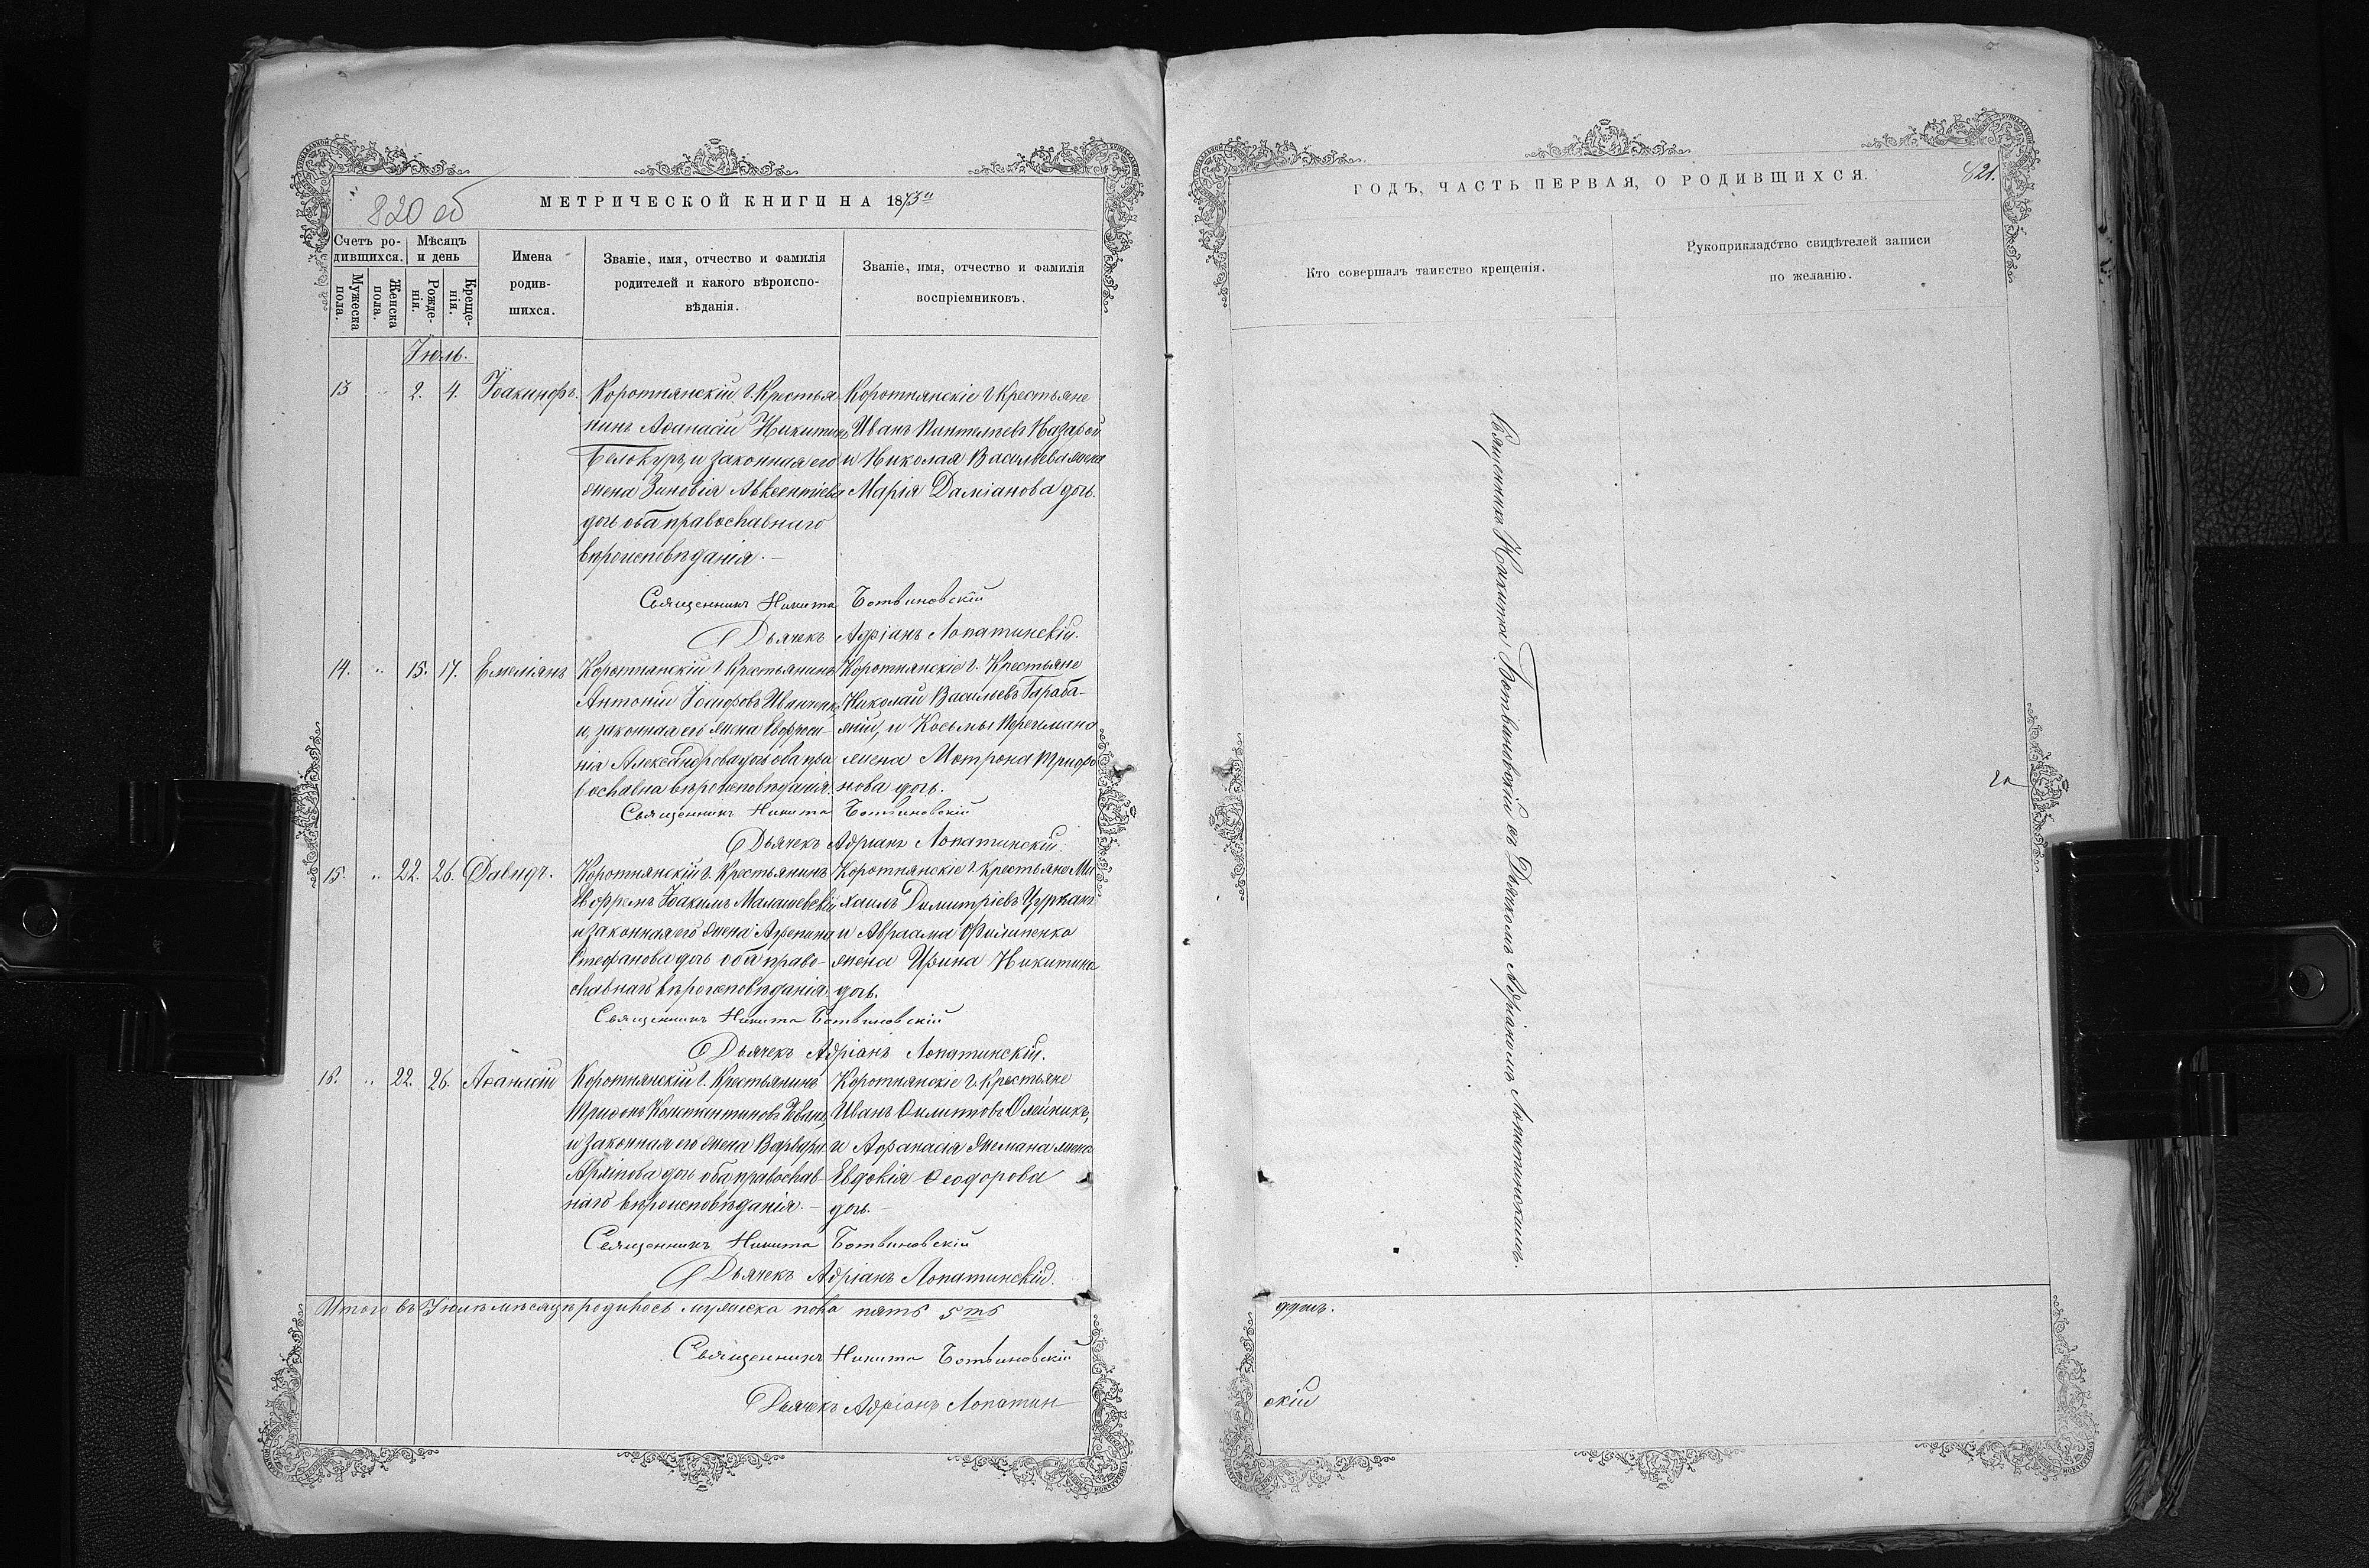 820 об
МЕТРИЧЕСКОЙ КНИГИ НА 1873й
Счетъ ро-
дившихся.
Мѣсяцъ
и день
Мужеска
пола.
Женска
пола.
Рожде-
нія.
Креще-
нія.
Имена
родив-
шихся.
Званіе, имя, отчество и фамилія
родителей и какого вѣроиспо-
вѣданія.
Званіе, имя, отчество и фамилія
воспріемниковъ.
Іюль.
13 " 2. 4. Іоакинфъ.
Коротнянскій г. Крестья
нинъ Аѳанасій Никитинъ
Белокуръ, и законная его
жена Зиновія Авксентіева
дочь оба православнаго
вѣроисповѣданія. —
Коротнянскіе г. Крестьяне
Иванъ Пантелеевъ
и Николая Васильева жена
Марія Даміанова дочь.
Священникъ Никита Ботвиновскій
Дьячекъ Адріанъ Лопатинскій.
14. " 15. 17. Емеліянъ
Коротнянскій г. Крестьянинъ
Антоній Іосифовъ
и законная его жена Евфроси
нія Александрова дочь оба пра
вославна вѣроисповѣданія.
Коротнянскіе г. Крестьяне
Николай Васильевъ Гараба-
жій, и Косьмы
жена Мотрона Трифо
нова дочь.
Священникъ Никита Ботвиновскій
Дьячекъ Адріанъ Лопатинскій.
15. " 22. 26. Давидъ.
Коротнянскій г. Крестьянинъ
Ефремъ Іоакимъ Малашевскій
и законная его жена Агрепина
Стефанова дочь оба право-
славнаго вѣроисповѣданія.
Коротнянскіе г. Крестьяне Ми
хаилъ Димитріевъ Цурканъ
и Авраама Филипенко
жена Ирина Никитина
дочь.
Священникъ Никита Ботвиновскій
Дьячекъ Адріанъ Лопатинскій.
16. " 22. 26. Аѳанасій
Коротнянскій г. Крестьянинъ
Трифонъ Константиновъ
и законная его жена Варвара
дочь оба православ-
наго вѣроисповѣданія. —
Коротнянскіе г. Крестьяне
Иванъ Филиповъ Олейникъ,
и Афанасія жена
Евдокія Ѳеодорова
дочь. —
Священникъ Никита Ботвиновскій
Дьячекъ Адріанъ Лопатинскій.
Итого въ Іюлѣ мѣсяцѣ родилось мужеска пола пять 5ть
Священникъ Никита Ботвиновскій
Дьячекъ Адріанъ Лопатин
ГОДЪ, ЧАСТЬ ПЕРВАЯ, О РОДИВШИХСЯ.
821.
Кто совершалъ таинство крещенія.
Рукоприкладство свидѣтелей записи
по желанію.
Священникъ Никита Ботвиновскій съ Дьячкомъ Адріаномъ Лопатинскимъ.
душъ.
скій